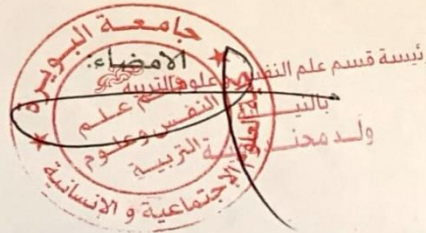 جامعة البويرة
الامضاء:
رئيسة قسم علم النفس وعلوم التربية
بالنيابة
ولد محند
قسم علم
النفس وعلوم
التربية
كلية العلوم الاجتماعية و الإنسانية